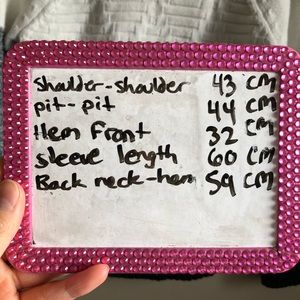 shoulder-shoulder 43 CM
pit-pit 44 CM
Hem Front 32 CM
sleeve length 60 CM
Back neck-hem 59 CM